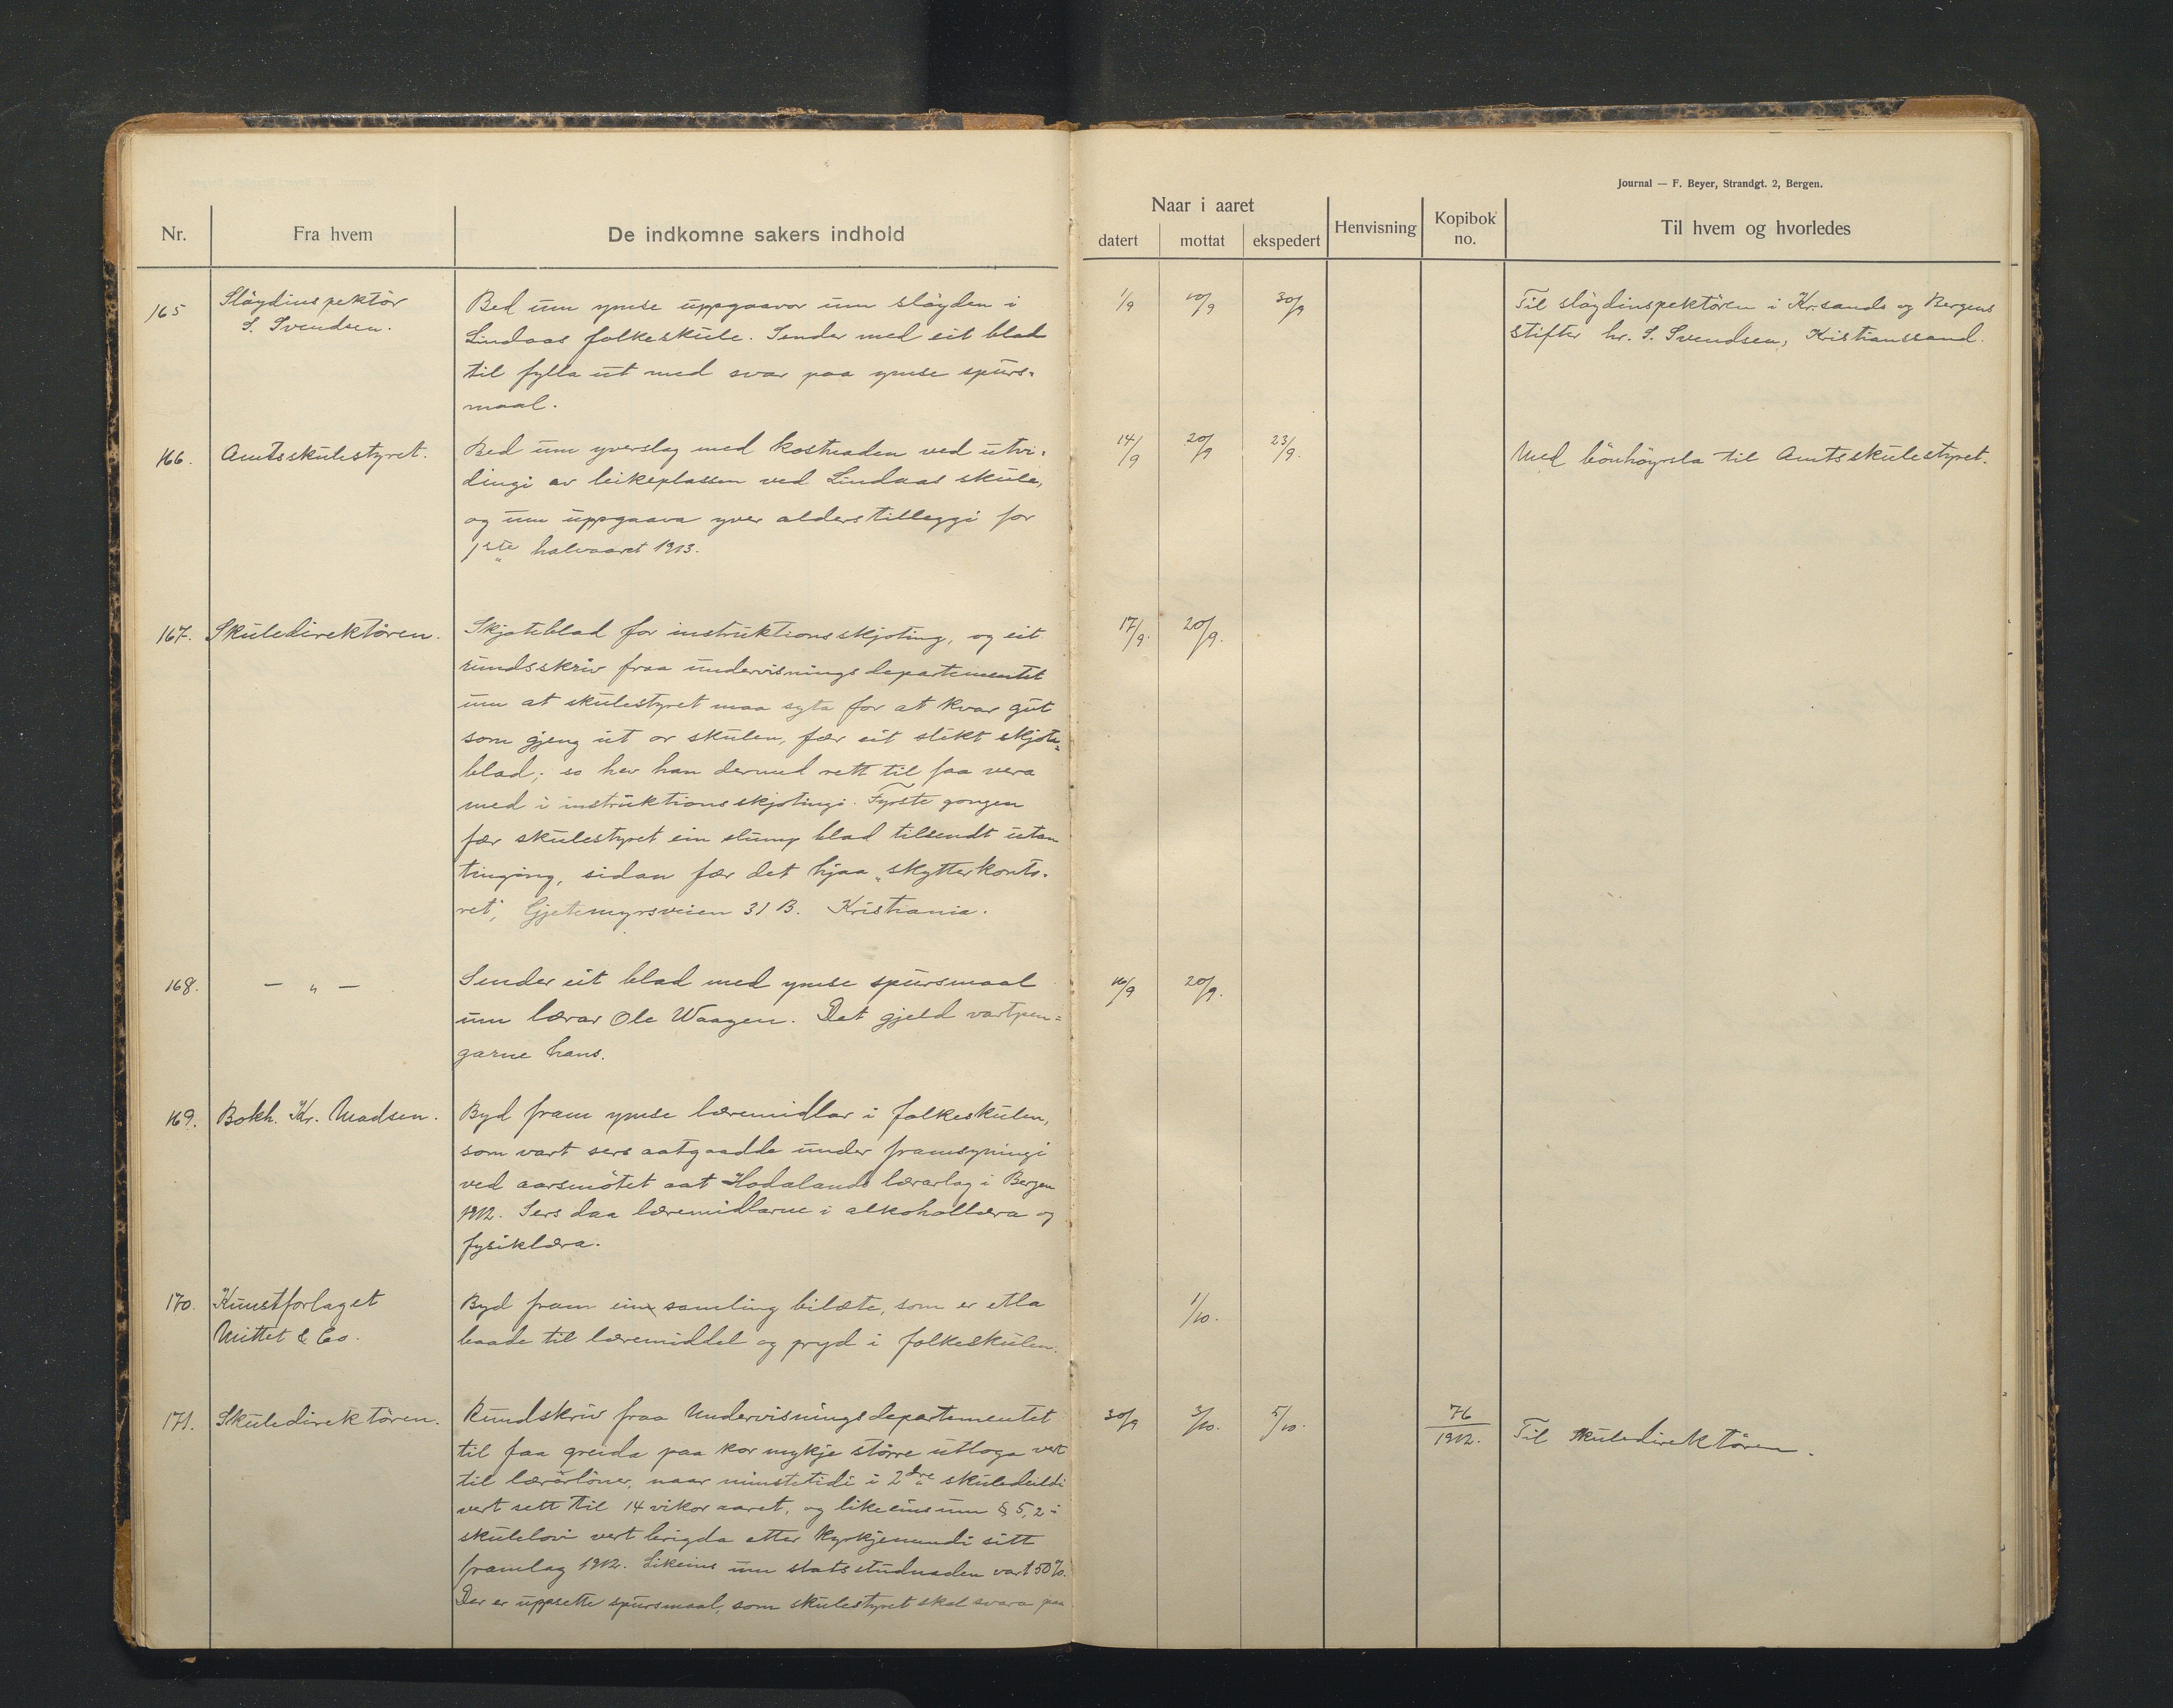 Journal — F. Beyer, Strandgt. 2, Bergen.
Nr.
Fra hvem
De indkomne sakers indhold
Naar i aaret
datert
mottat
ekspedert
Henvisning
Kopibok no.
Til hvem og hvorledes
165
Slöydinspektör
S. Svendsen.
Bed um ymse uppgaavor um slöyden i
Lindaas folkeskule. Sender med eit blad
til fylla ut med svar paa ymse spurs-
maal.
1/9
10/9
30/9
Til slöydinspektören i Kr.sands og Bergens
stifter hr. S. Svendsen, Kristianssand.
166.
Amtsskulestyret.
Bed um yverslag med kostnaden ved utvi-
dingi av leikeplassen ved Lindaas skule,
og um uppgaava yver alderstilleggi for
1ste halvaaret 1913.
14/9
20/9
23/9.
Med bönhöyrsla til Amtsskulestyret.
167.
Skuledirektören.
Skjoteblad for instruktionsskjoting, og eit
rundsskriv fraa undervisningsdepartementet
um at skulestyret maa syta for at kvar gut
som gjeng ut or skulen, fær eit slikt skjote-
blad; so hev han dermed rett til faa vera
med i instruktionsskjotingi. Fyrste gongen
fær skulestyret ein slump blad tilsendt utan
tinging, sidan fær det hjaa „skytterkonto-
ret", Gjetemyrsveien 31 B. Kristiania.
17/9.
20/9.
168.
— „ —
Sender eit blad med ymse spursmaal
um lærar Ole Waagen. Det gjeld vartpen-
garne hans.
16/9
20/9.
169.
Bokh. Kr. Madsen.
Byd fram ymse læremidlar i folkeskulen,
som vart sers aatgaadde under framsyningi
ved aarsmötet aat Hodalands lærarlag i Bergen
1912. Sers daa læremidlarne i alkohollæra og
fysiklæra.
170.
Kunstforlaget
Mittet & Co.
Byd fram ein samling bilæte, som er etla
baade til læremiddel og pryd i folkeskulen.
1/10.
171.
Skuledirektören.
Rundskriv fraa Undervisningsdepartementet
til faa greida paa kor mykje större utloga vert
til lærarlöner, naar minstetidi i 2dre skuledeildi
vert sett til 14 vikor aaret, og likeeins um § 5,2 i
skulelovi vert brigda etter kyrkjenemndi sitt
framlag 1912. Likeins um statsstudnaden vart 50%.
Der er uppsette spursmaal, som skulestyret skal svara paa
30/9
3/10.
5/10.
76
1912.
Til skuledirektören.